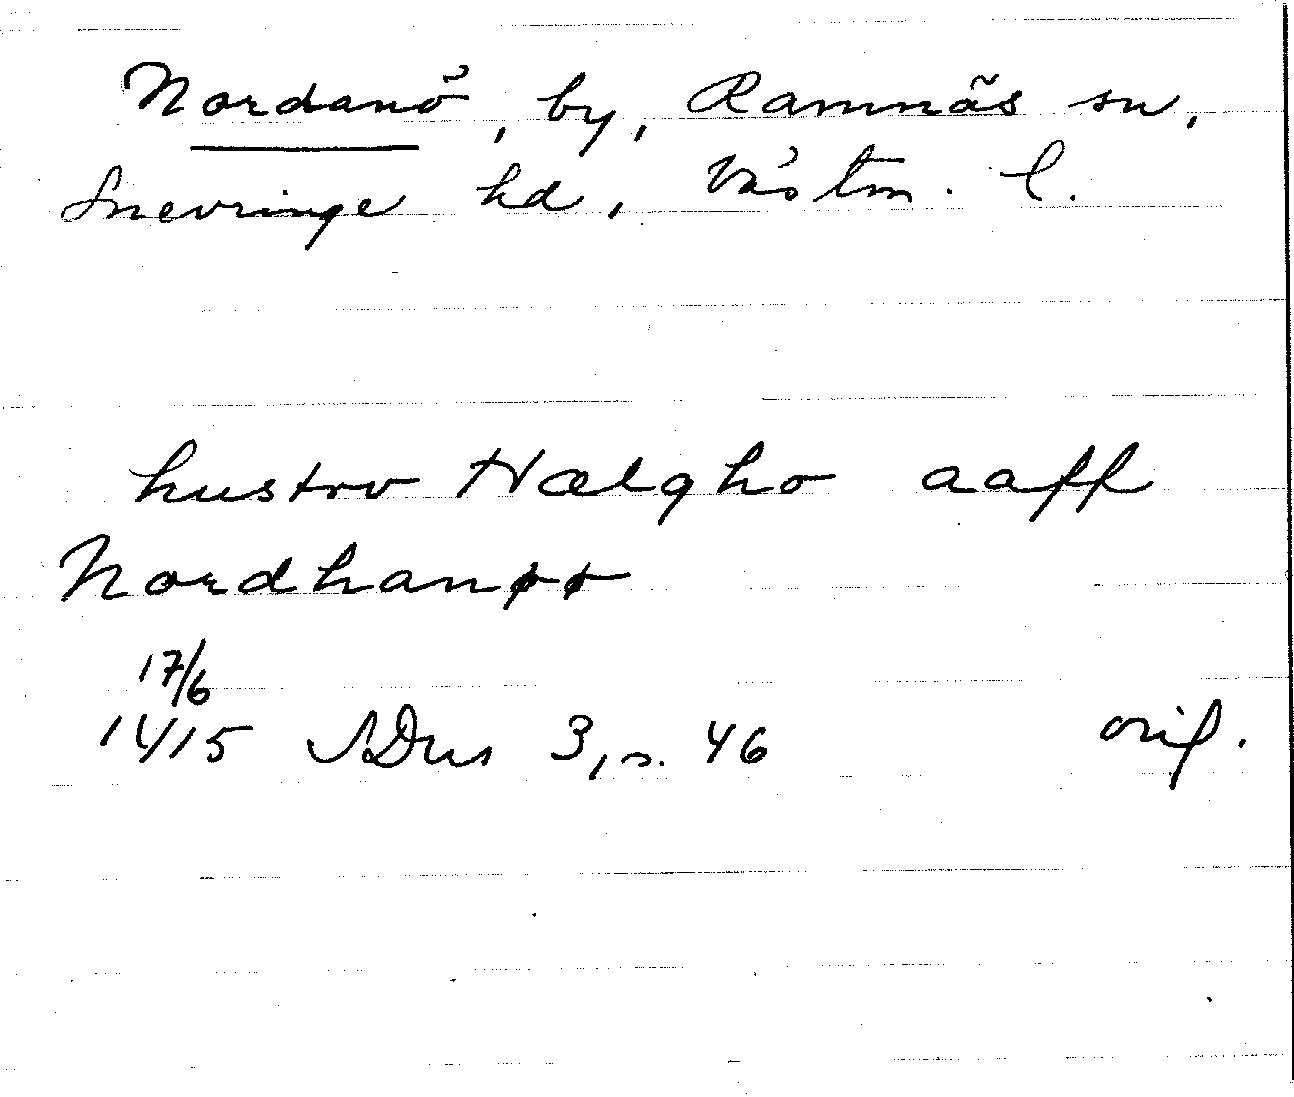 Nordanö, by, Ramnäs sn,
Snevringe hd, Västm. l.
hustrv Hælgho aaff
Nordhanøø
17/6
1415 SDns 3, s. 46 orig.